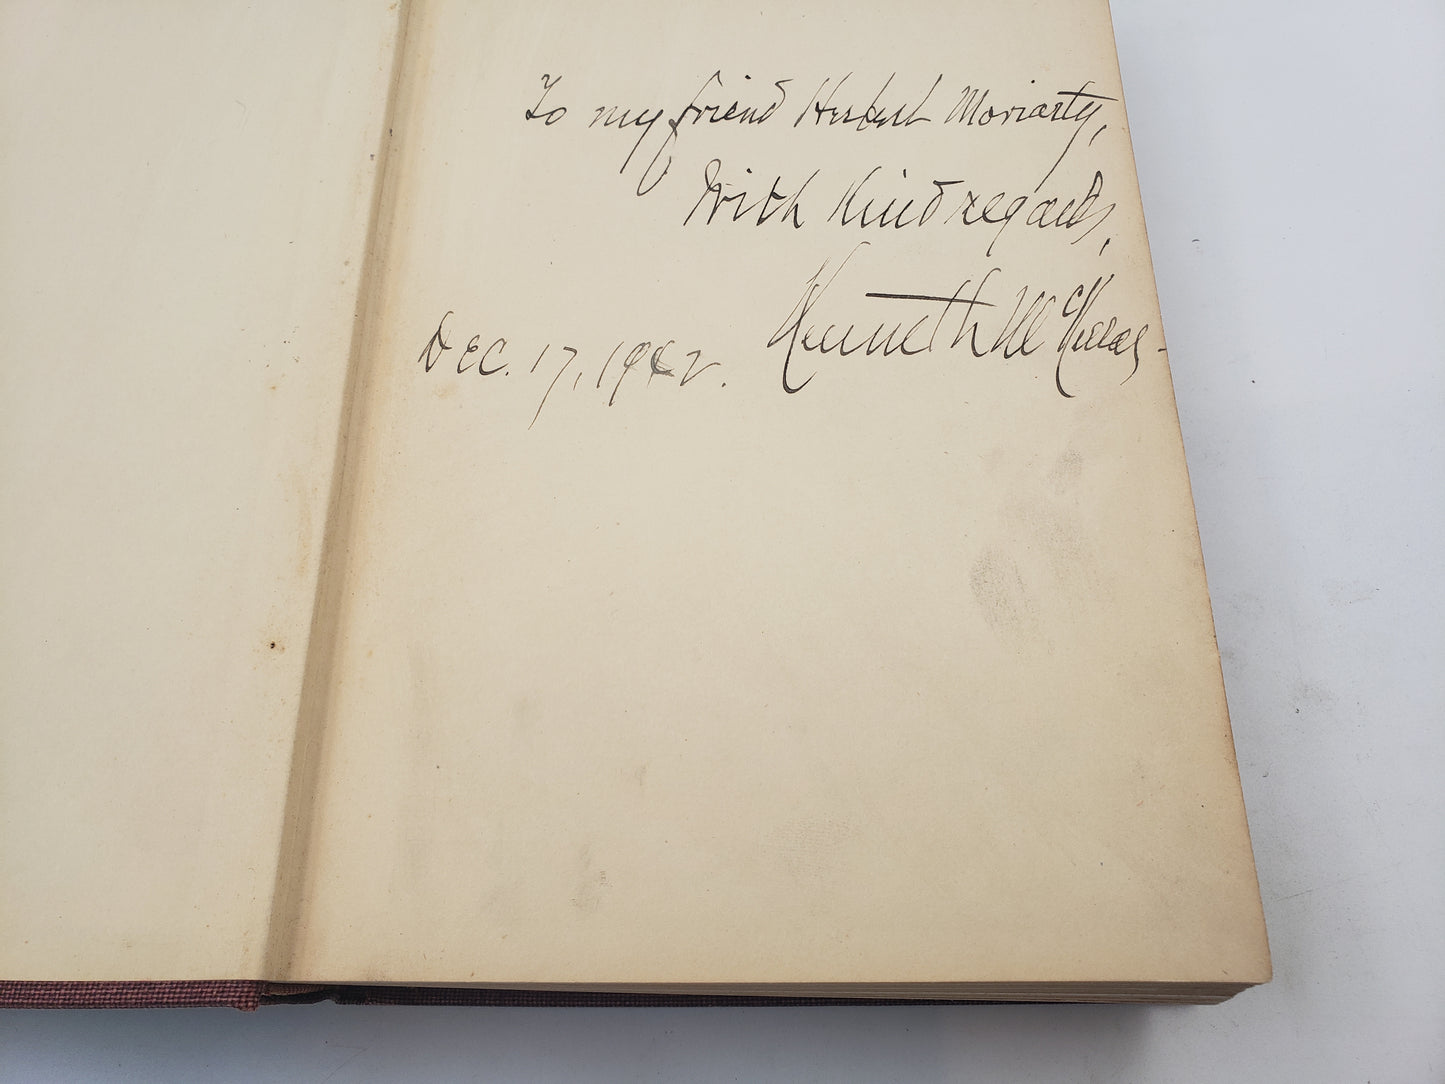 To my friend Herbert Moriarty,
With Kind regards,
Kenneth McKellar
Dec. 17, 1942.